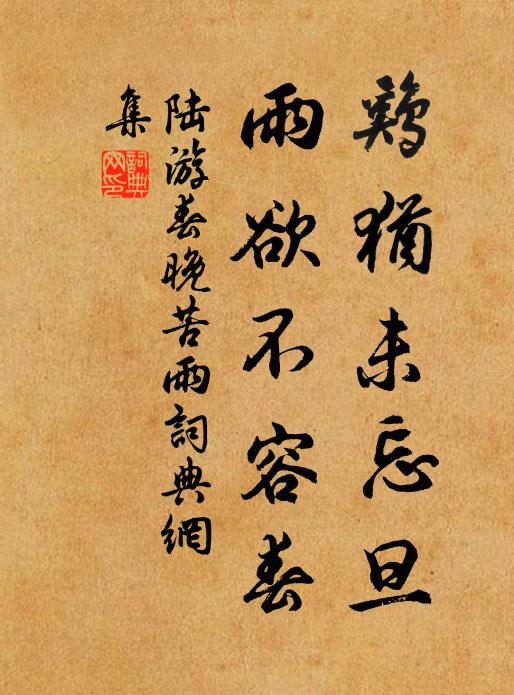 鷄猶未忘旦
雨欲不容春
陆游春晚苦雨詞典網
集
詞典
网印